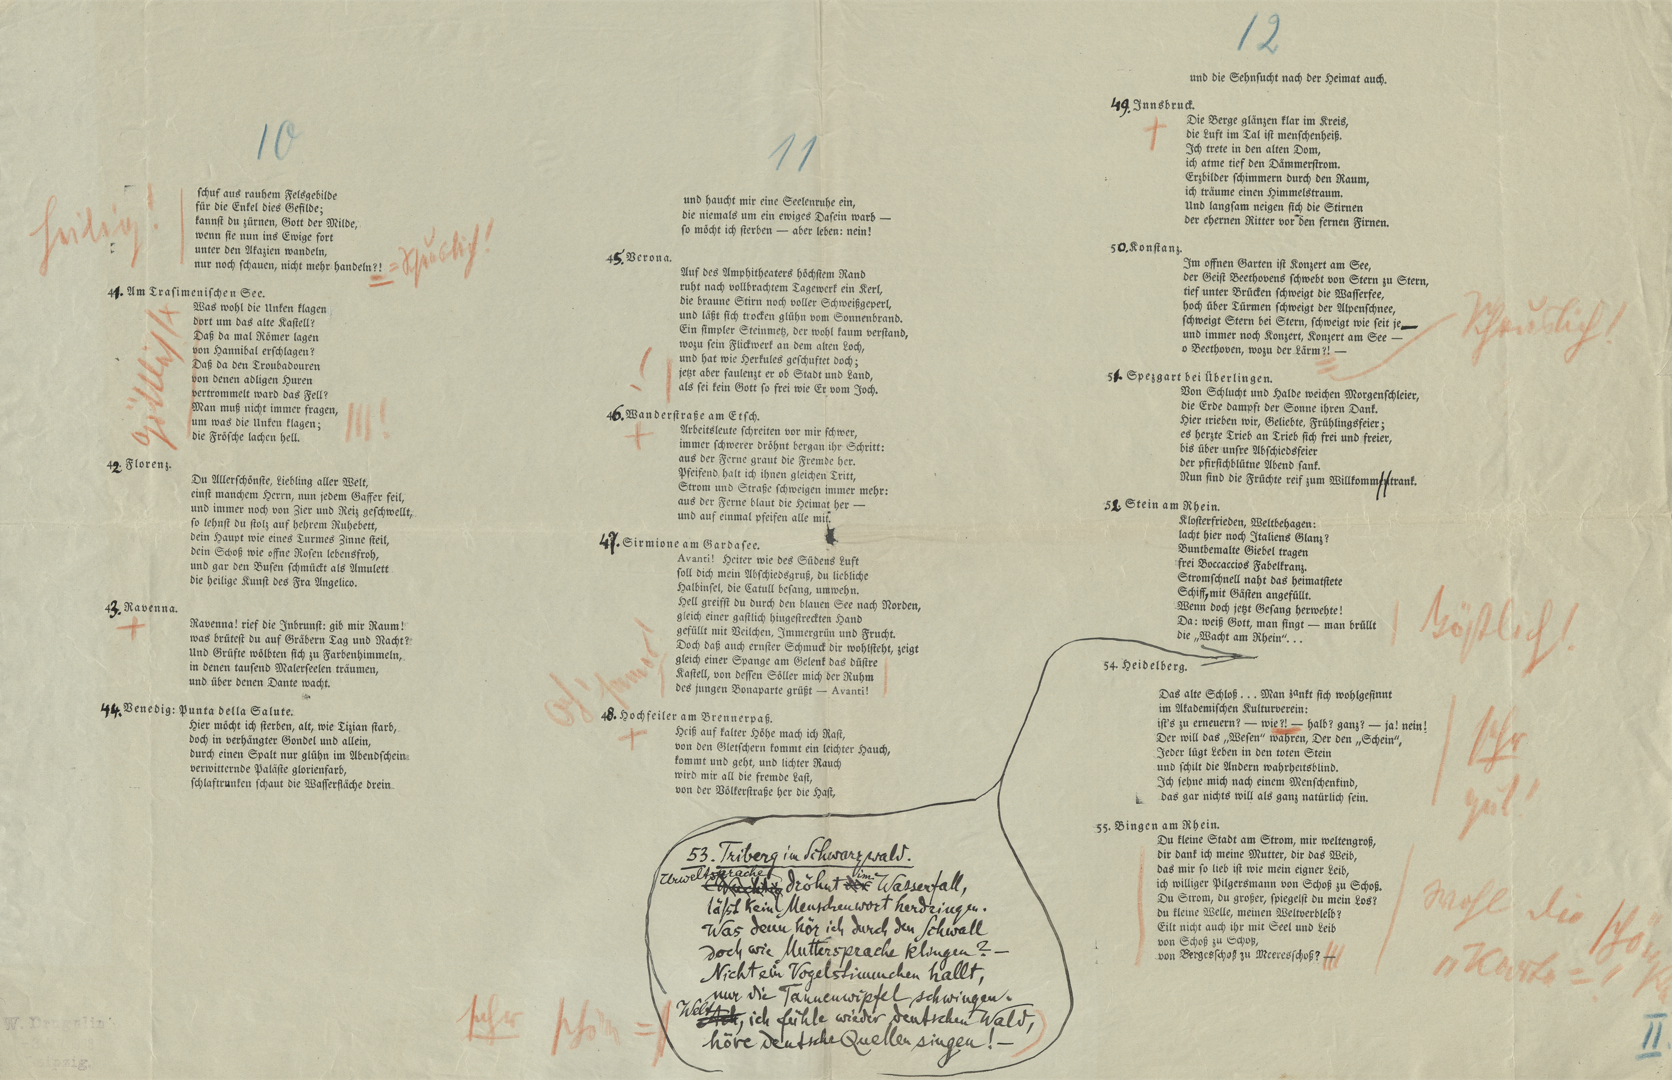 10
schuf aus rauhem Felsgebilde
für die Enkel dies Gefilde;
kannst du zürnen, Gott der Milde,
wenn sie nun ins Ewige fort
unter den Akazien wandeln,
nur noch schauen, nicht mehr handeln?!
= Scheuslich!
41. Am Trasimenischen See.
Was wohl die Unken klagen
dort um das alte Kastell?
Daß da mal Römer lagen
von Hannibal erschlagen?
Daß da den Troubadouren
von denen adligen Huren
vertrommelt ward das Fell?
Man muß nicht immer fragen,
um was die Unken klagen;
die Frösche lachen hell.
42. Florenz.
Du Allerschönste, Liebling aller Welt,
einst manchem Herrn, nun jedem Gaffer feil,
und immer noch von Zier und Reiz geschwellt,
so lehnst du stolz auf hehrem Ruhebett,
dein Haupt wie eines Turmes Zinne steil,
dein Schoß wie offne Rosen lebensfroh,
und gar den Busen schmückt als Amulett
die heilige Kunst des Fra Angelico.
43. Ravenna.
Ravenna! rief die Inbrunst: gib mir Raum!
was brütest du auf Gräbern Tag und Nacht?
Und Grüfte wölbten sich zu Farbenhimmeln,
in denen tausend Malerseelen träumen,
und über denen Dante wacht.
44. Venedig: Punta della Salute.
Hier möcht ich sterben, alt, wie Tizian starb,
doch in verhängter Gondel und allein,
durch einen Spalt nur glühn im Abendschein
verwitternde Paläste glorienfarb,
schlaftrunken schaut die Wasserfläche drein
11
und haucht mir eine Seelenruhe ein,
die niemals um ein ewiges Dasein warb —
so möcht ich sterben — aber leben: nein!
45. Verona.
Auf des Amphitheaters höchstem Rand
ruht nach vollbrachtem Tagewerk ein Kerl,
die braune Stirn noch voller Schweißgeperl,
und läßt sich trocken glühn vom Sonnenbrand.
Ein simpler Steinmetz, der wohl kaum verstand,
wozu sein Flickwerk an dem alten Loch,
und hat wie Herkules geschuftet doch;
jetzt aber faulenzt er ob Stadt und Land,
als sei kein Gott so frei wie Er vom Joch.
46. Wanderstraße am Etsch.
Arbeitsleute schreiten vor mir schwer,
immer schwerer dröhnt bergan ihr Schritt:
aus der Ferne graut die Fremde her.
Pfeifend halt ich ihnen gleichen Tritt,
Strom und Straße schweigen immer mehr:
aus der Ferne blaut die Heimat her —
und auf einmal pfeifen alle mit.
47. Sirmione am Gardasee.
Avanti! Heiter wie des Südens Luft
soll dich mein Abschiedsgruß, du liebliche
Halbinsel, die Catull besang, umwehn.
Hell greifst du durch den blauen See nach Norden,
gleich einer gastlich hingestreckten Hand
gefüllt mit Veilchen, Immergrün und Frucht.
Doch daß auch ernster Schmuck dir wohlsteht, zeigt
gleich einer Spange am Gelenk das düstre
Kastell, von dessen Söller mich der Ruhm
des jungen Bonaparte grüßt — Avanti!
48. Hochfeiler am Brennerpaß.
Heiß auf kalter Höhe mach ich Rast,
von den Gletschern kommt ein leichter Hauch,
kommt und geht, und lichter Rauch
wird mir all die fremde Last,
von der Völkerstraße her die Hast,
53. Triberg im Schwarzwald.
Urweltsprache dröhnt vim Wasserfall,
läßt kein Menschenwort herdringen.
Was denn hör ich durch den Schwall
doch wie Muttersprache klingen? —
Nicht ein Vogelstimmchen hallt,
nur die Tannenwipfel schwingen.
Welt, ich fühle wieder deutschen Wald,
höre deutsche Quellen singen! —
sehr schön =
12
und die Sehnsucht nach der Heimat auch.
49. Innsbruck.
Die Berge glänzen klar im Kreis,
die Luft im Tal ist menschenheiß.
Ich trete in den alten Dom,
ich atme tief den Dämmerstrom.
Erzbilder schimmern durch den Raum,
ich träume einen Himmelstraum.
Und langsam neigen sich die Stirnen
der ehernen Ritter vor den fernen Firnen.
50. Konstanz.
Im offnen Garten ist Konzert am See,
der Geist Beethovens schwebt von Stern zu Stern,
tief unter Brücken schweigt die Wasserfee,
hoch über Türmen schweigt der Alpenschnee,
schweigt Stern bei Stern, schweigt wie seit je —
und immer noch Konzert, Konzert am See —
o Beethoven, wozu der Lärm?! —
Scheuslich!
51. Spezgart bei Überlingen.
Von Schlucht und Halde weichen Morgenschleier,
die Erde dampft der Sonne ihren Dank.
Hier trieben wir, Geliebte, Frühlingsfeier;
es herzte Trieb an Trieb sich frei und freier,
bis über unsre Abschiedsfeier
der pfirsichblütne Abend sank.
Nun sind die Früchte reif zum Willkommstrank.
52. Stein am Rhein.
Klosterfrieden, Weltbehagen:
lacht hier noch Italiens Glanz?
Buntbemalte Giebel tragen
frei Boccaccios Fabelkranz.
Stromschnell naht das heimatstete
Schiff, mit Gästen angefüllt.
Wenn doch jetzt Gesang herwehte!
Da: weiß Gott, man singt — man brüllt
die „Wacht am Rhein“...
Köstlich!
54. Heidelberg.
Das alte Schloß... Man zankt sich wohlgesinnt
im Akademischen Kulturverein:
ist's zu erneuern? — wie?! — halb? ganz? — ja! nein!
Der will das „Wesen“ wahren, Der den „Schein“,
Jeder lügt Leben in den toten Stein
und schilt die Andern wahrheitsblind.
Ich sehne mich nach einem Menschenkind,
das gar nichts will als ganz natürlich sein.
sehr
gut!
55. Bingen am Rhein.
Du kleine Stadt am Strom, mir weltengroß,
dir dank ich meine Mutter, dir das Weib,
das mir so lieb ist wie mein eigner Leib,
ich williger Pilgersmann von Schoß zu Schoß.
Du Strom, du großer, spiegelst du mein Los?
du kleine Welle, meinen Weltverbleib?
Eilt nicht auch ihr mit Seel und Leib
von Schoß zu Schoß,
von Bergesschoß zu Meeresschoß? —
wohl die
II